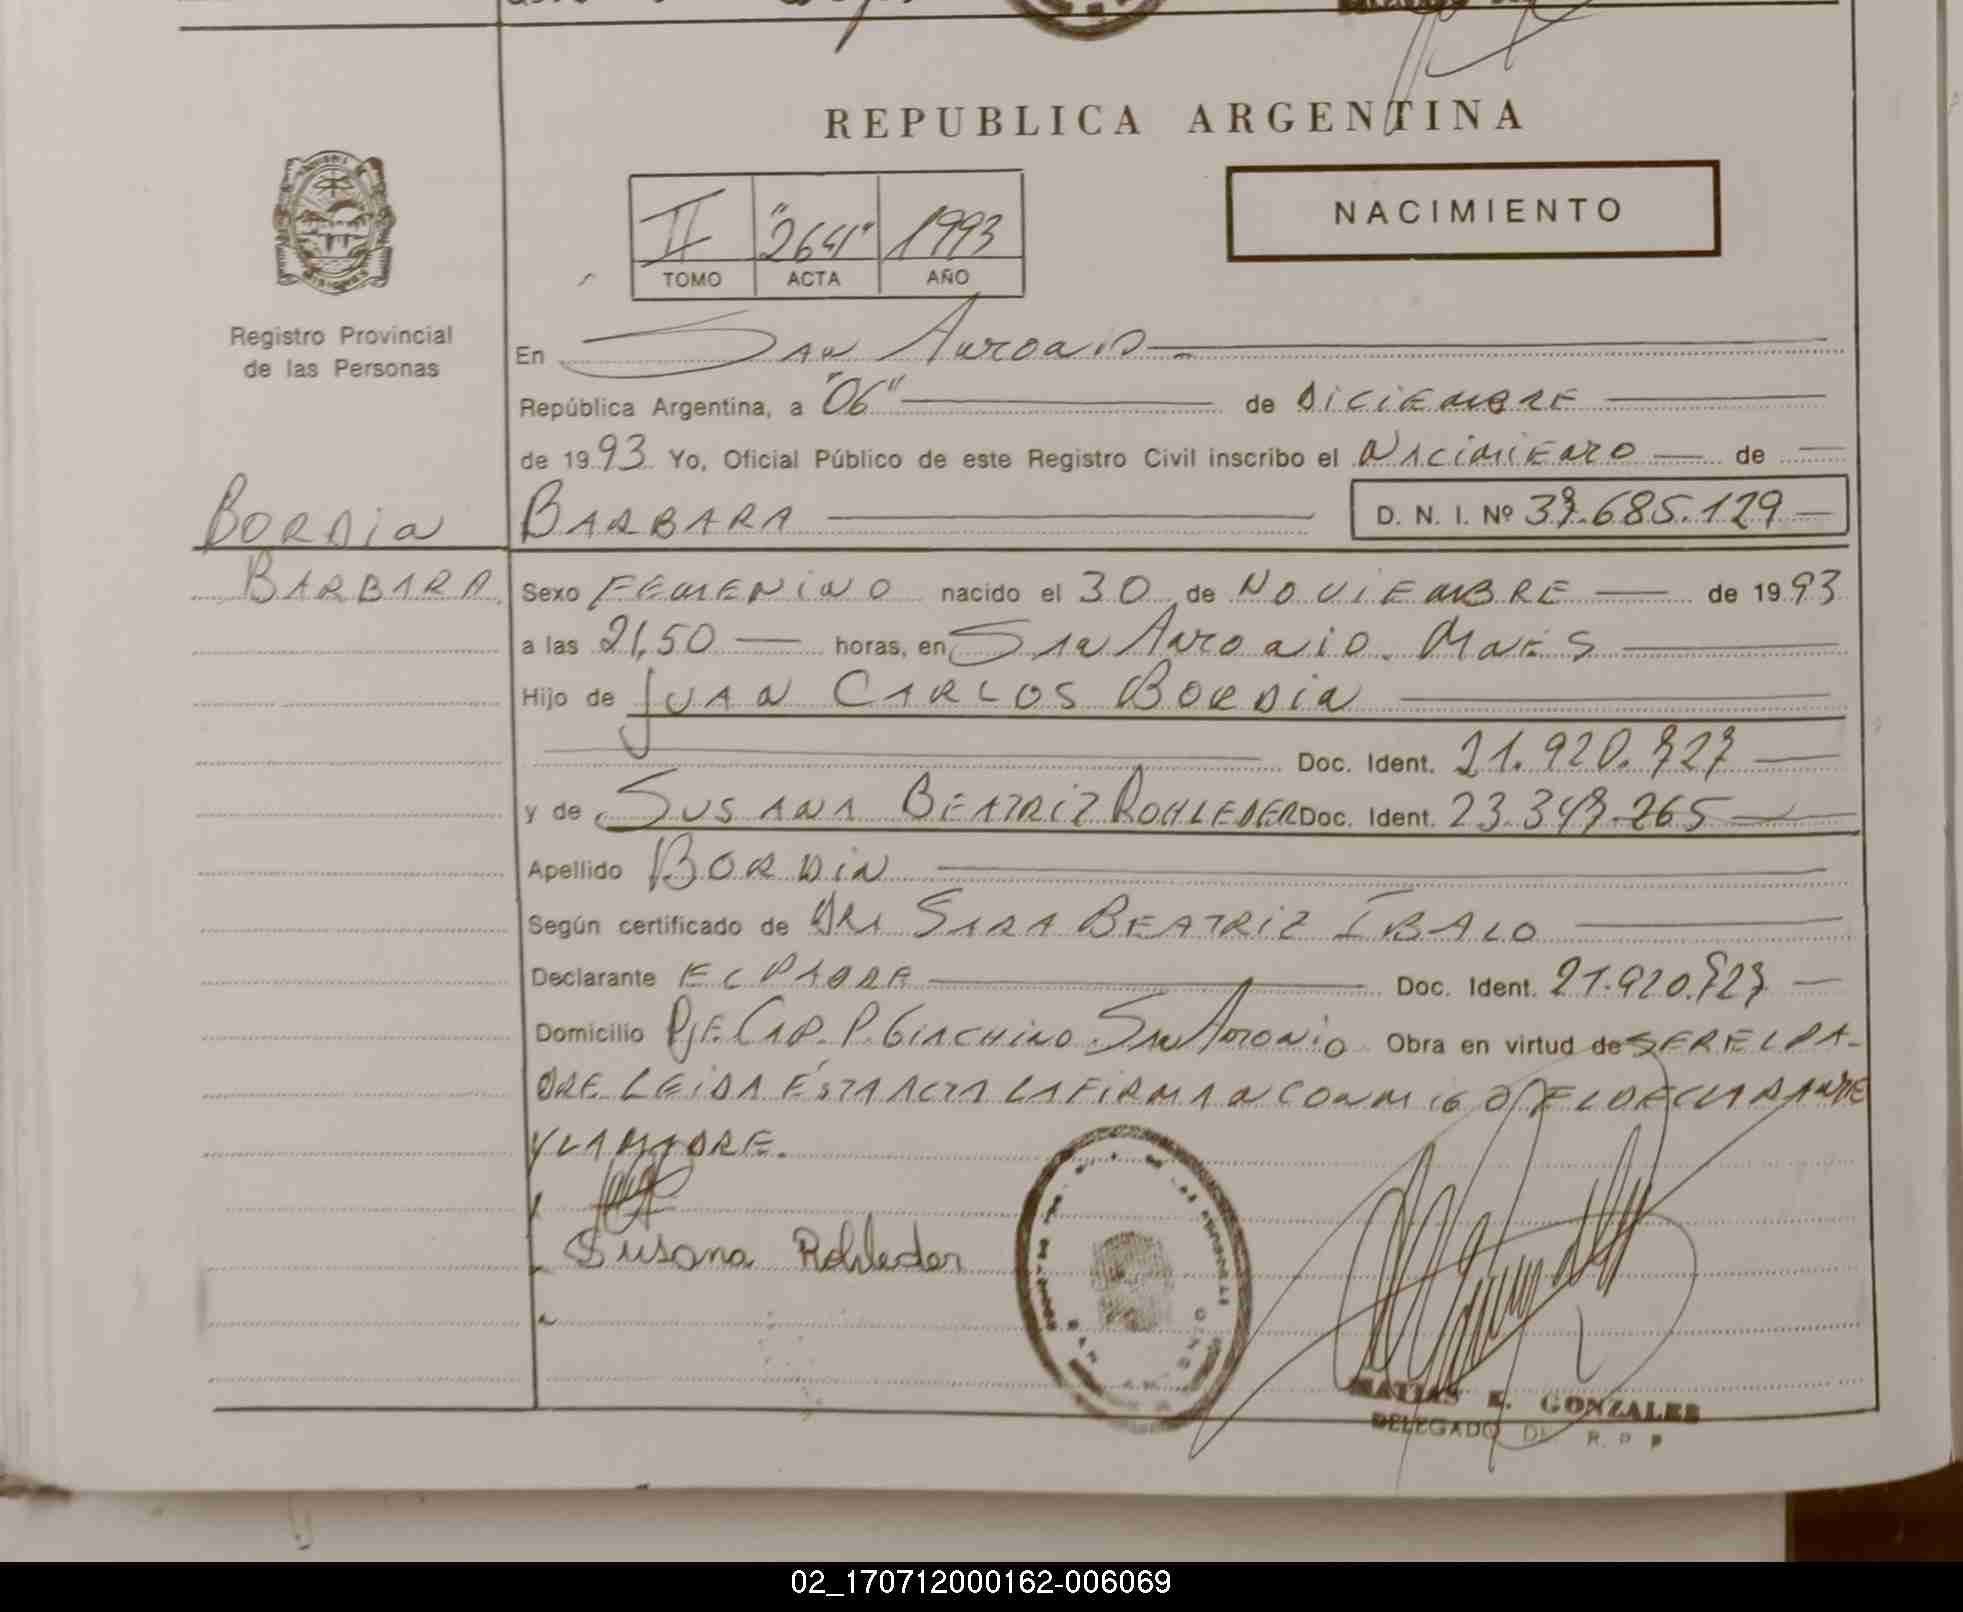 REPUBLICA ARGENTINA
NACIMIENTO
II "264" 1993
TOMO ACTA AÑO
Registro Provincial
de las Personas
En San Antonio
República Argentina, a "06" de Diciembre
de 1993 Yo, Oficial Público de este Registro Civil inscribo el Nacimiento de
Bordin
Barbara D. N. I. Nº 37.685.129
Barbara
Sexo Femenino nacido el 30 de Noviembre de 1993
a las 21,50 horas, en San Antonio. Mnes
Hijo de Juan Carlos Bordin
Doc. Ident. 21.920.727
y de Susana Beatriz Rohleder Doc. Ident. 23.347.265
Apellido Bordin
Según certificado de Dra Sara Beatriz Ibalo
Declarante El Padre Doc. Ident. 21.920.727
Domicilio Pje. Cap. P. Giachino. San Antonio Obra en virtud de ser el pa-
dre. Leida ésta acta la firman conmigo el declarante
y la madre.
Susana Rohleder
MATIAS E. GONZALES
DELEGADO DE R. P. P
02_170712000162-006069